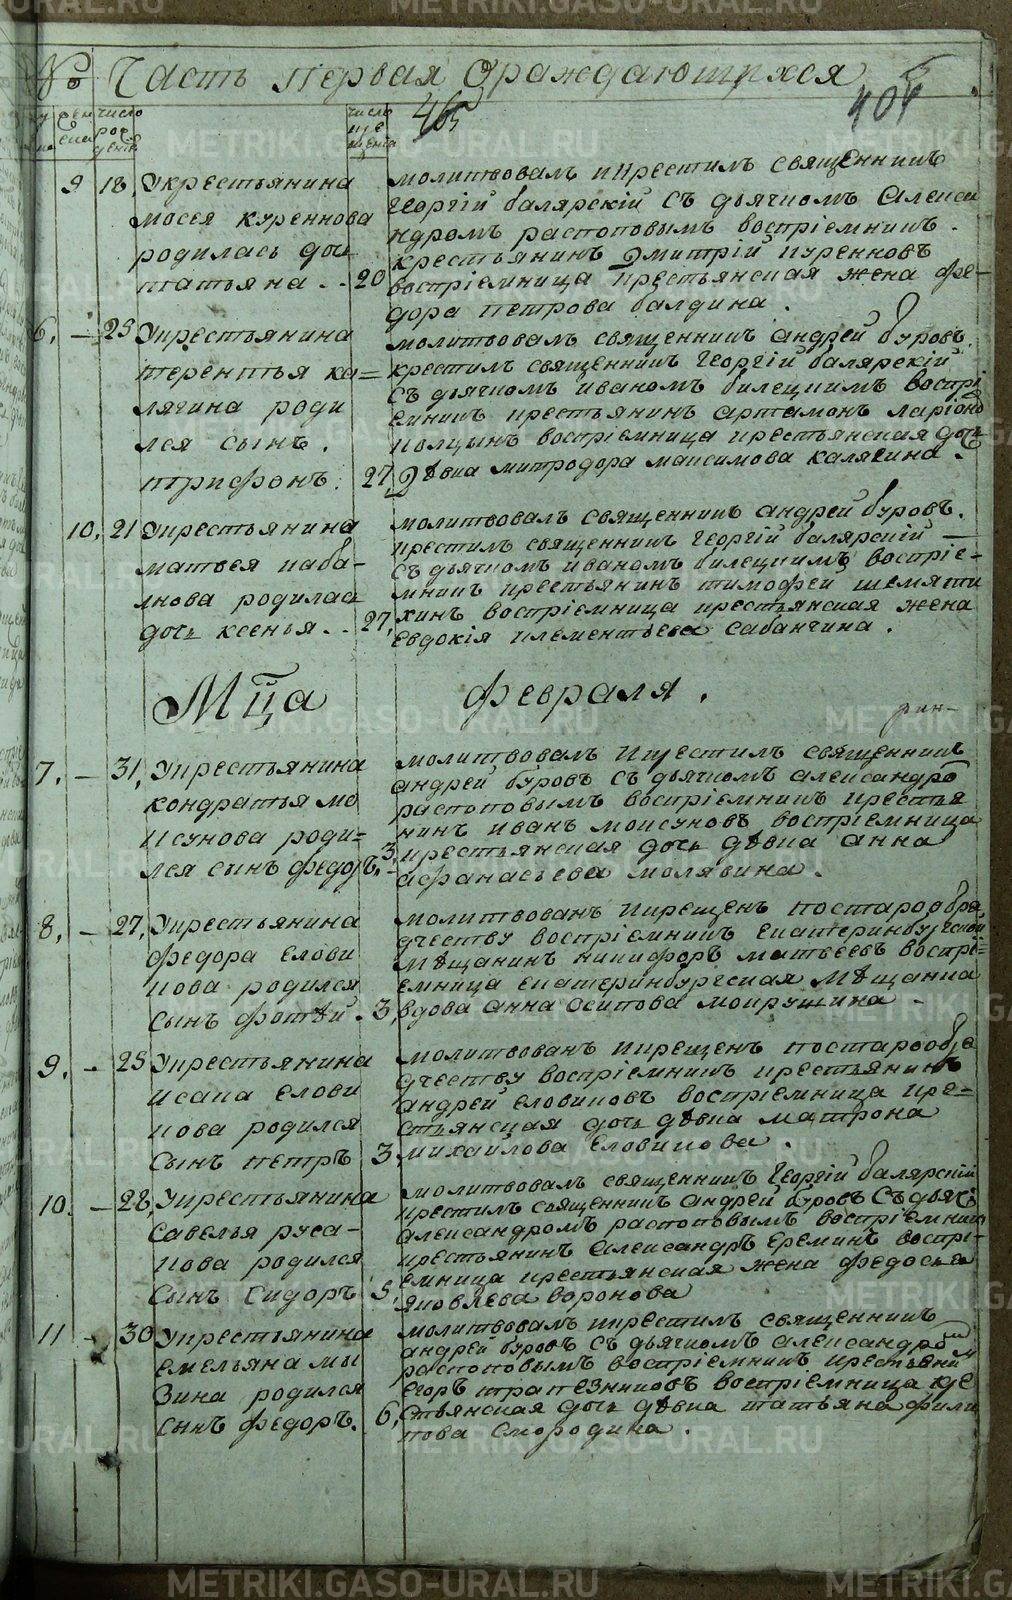 № Часть первая ораждающихся 5
465 404
число рождения
число крещения
9 18, Укрестьянина
мосея куреннова
родилась дочь
татьяна . . 20
молитвовалъ икрестилъ священникъ
георгій балярскій съ дьячкомъ Алекса
ндромъ распоповымъ воспріемникъ
крестьянинъ дмитрій куренновъ
воспріемница крестьянская жена фе-
дора петрова балдина .
6, — 23 Укрестьянина
терентья ка=
лягина роди
лся сынъ .
трифонъ . 27,
молитвовалъ священникъ андрей буровъ.
крестилъ священникъ георгій балярскій
съ дьячкомъ иваномъ билецкимъ воспрі
емникъ крестьянинъ артамонъ ларіоно
воспріемница крестьянская дочь
дѣвка митродора максимова калягина .
10, 21 Укрестьянина
матвея каба-
кова родилас
дочь ксенья . . 27,
молитвовалъ священникъ андрей буровъ.
крестилъ священникъ георгій балярскій —
съ дьячкомъ иваномъ билецкимъ воспріе-
мникъ крестьянинъ тимофей шемяти
хинъ воспріемница крестьянская жена
евдокія клементьева сабанчина .
Мца февраля .
7, — 31, Укрестьянина
кондратья мо
ксунова роди=
лся сынъ федоръ, 3,
молитвовалъ Икрестилъ священникъ
андрей буровъ съ дьячкомъ александро
распоповымъ воспріемникъ крестья
нинъ иванъ моксуновъ воспріемница
крестьянская дочь дѣвка анна
афанасьева молявина .
8, — 27, Укрестьянина
федора елови
кова родился
сынъ фотѣй . 3,
молитвованъ Икрещенъ постарообря
дчеству воспріемникъ екатеринбургской
мѣщанинъ никифоръ матвеевъ воспрі=
емница екатеринбургская мѣщанка
вдова анна осипова мокрушина —
9. — 25 Укрестьянина
исака елови
кова родился
сынъ петръ 3,
молитвованъ Икрещенъ постарообря
дчеству воспріемникъ крестьянинъ
андрей еловиковъ воспріемница кре=
стьянская дочь дѣвка матрона
михайлова еловикова .
10. — 28, Укрестьянина
савелья руса-
кова родился
сынъ сидоръ 5,
молитвовалъ священникъ георгій балярскій
крестилъ священникъ андрей буровъ съ дьячк
александромъ распоповымъ воспріемникъ
крестьянинъ александръ ереминъ воспрі-
емница крестьянская жена федосья
яковлева воронова
11 — 30 Укрестьянина
емельяна мы
зина родился
сынъ федоръ. 6,
молитвовалъ икрестилъ священникъ
андрей буровъ съ дьячкомъ александромъ
распоповымъ воспріемникъ крестьяни
егоръ трапезниковъ воспріемница кре
стьянская дочь дѣвка татьяна фили
пова смородина .